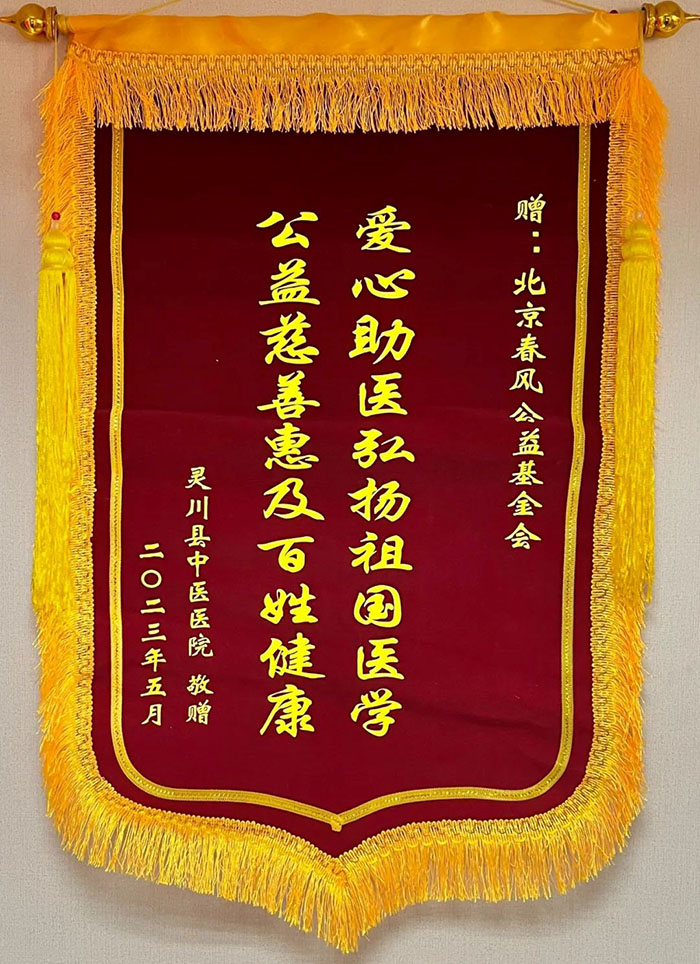 赠：北京春风公益基金会
爱心助医弘扬祖国医学
公益慈善惠及百姓健康
灵川县中医医院 敬赠
二〇二三年五月